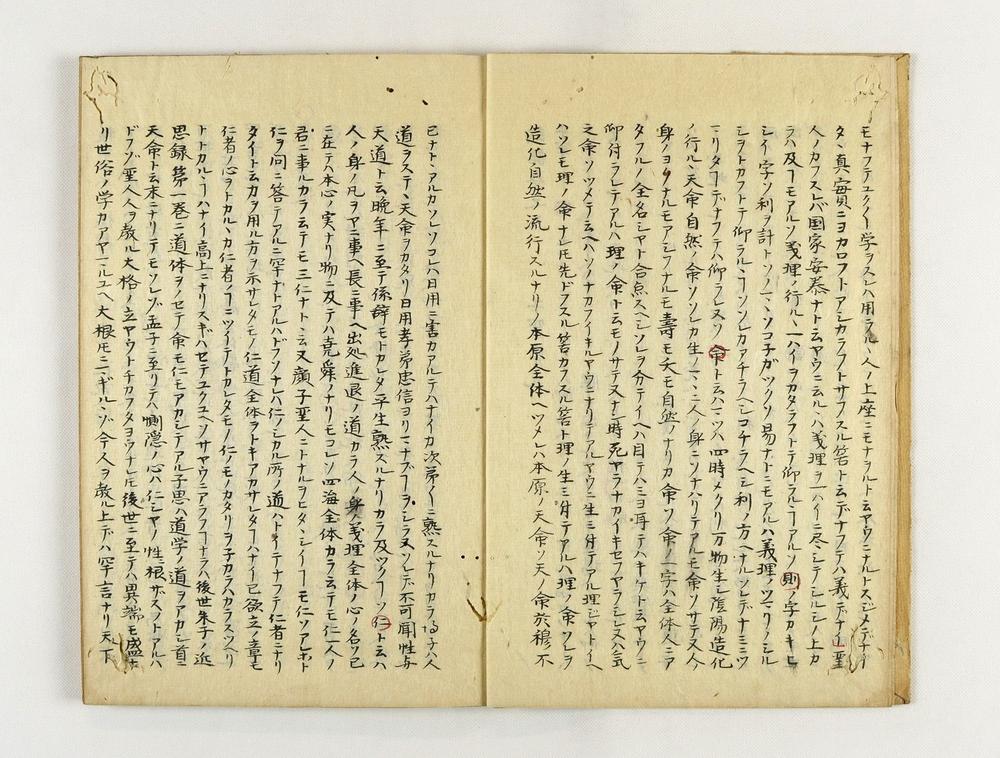 モナフテユク〱学ヲスレハ用ラル丶人ノ上座ニモナヲルト云ヤウニナルトスジメテナイ
タヾ真実ニヨカロフトアシカラフトサフスル筈ト云デナフテハ義デナイ聖
人ノカフスレバ国家安泰ナト云ヤウニ云ルヽハ義理ヲ一ハイニ尽シテシルシノ上カ
ラハ及フモアルソ義理ノ行ルヽ一ハイヲカタラフトテ仰ラルヽアルソ則ノ字カキヒ
シイ字ソ利ヲ計トソノマヽソコ子ガツクソ易ナトニモアルハ義理ノツマリノシル
シヲトカフトテ仰ラルヽソンレカアチラヘシコチラヘシ利ノ方ヘナルソレデナミニツ
マリタデナフテハ仰ラレヌソ命ト云ハマツハ四時メクリ万物生シ陰陽造化
ノ行ルヽ天命自然ノ命ソソレカ生ノマヽニ人ノ身ニソナハリテアルモ命ソサテ又人ノ
身ノヨウナルモアシフナルモ壽モ夭モ自然ノナリカ命ソ命ノ一字ハ全体人ニア
タフルノ全名シヤト合点スヘシソレヲ分テイヘハ目テハミヨ耳テハキケト云ヤウニ
仰付ラレテアルハ理ノ命ト云モノサテ又ナレ時死ヤラナカイキセフヤラシレヌハ気
之命ソツメテ云ヘハソノナカフイキルヤウニナリテアルヤウニ生ミ付テアル理ジヤトイヘ
ハソレモ理ノ命ナレ𪜈先ドフスル筈カフスル筈ト理ノ生ミ付テアルハ理ノ命ソレヲ
造化自然ノ流行スルナリノ本原全体ヘツメレハ本原ノ天命ソ天ノ命於穆不
已ナト丶アルカソレソコレハ日用ニ害カアルテハナイカ次第〱ニ熟スルナリカラ得ル子ハ人
道ヲステヽ天命ヲカタリ日用孝弟忠信ヲヨソニナフテヲシラヌソレデ不可聞性与
天道ト云晩年ニ至テ係辞モトカレタ子生熟スルナリカラ及ツクソ仁ト云ハ
人ノ身ノ凡ヲヤニ事ヘ長ニ事ヘ出処進退ノ道カラ人ノ身ノ義理全体ノ心ノ名ソ已
ニ在テハ本心ノ実ナリ物ニ及テハ堯舜ノナリモコレソ四海全体カラ云テモ仁一人ノ
君ニ事ルカラ云テモ三仁ナト丶云又顔子聖人ニトナルヲヒタヽシイモ仁ソアレホト
仁ヲ問ニ答テアルニ罕ナトアルハドフソナレハ仁ノシカル所ノ道ハトイテナフテ仁者ニナリ
タイト云カラ用ル方ヲ示サレタモノ仁道全体ヲトキアカサレタハナイ已欲立ノ章モ
仁者ノ心ヲトカルヽカ仁者ノニツイテトカレタモノ仁ノモノカタリヲ子カラハカラスツヘリ
トトカルヽハナイ高上ニナリスギハセテユクユヘソサヤウニアラフナラハ後世朱子ノ近
思録第一巻ニ道体ヲノセテ命モ仁モアカシテアル子思ハ道学ノ道ヲアカシ首ニ
天命ト云末ニナリテモソレゾ孟子ニ至リテハ惻隠ノ心ハ仁シヤノ性根ザスフトアルハ
ドフソ聖人人ヲ教ル大格ノ立ヤウトチカフタヨウナレ𪜈後世ニ至テハ異端モ盛ナ
リ世俗ノ学カアヤマルユヘ大根モニギルソ今人ヲ教ル上デハ罕言ナリ天下